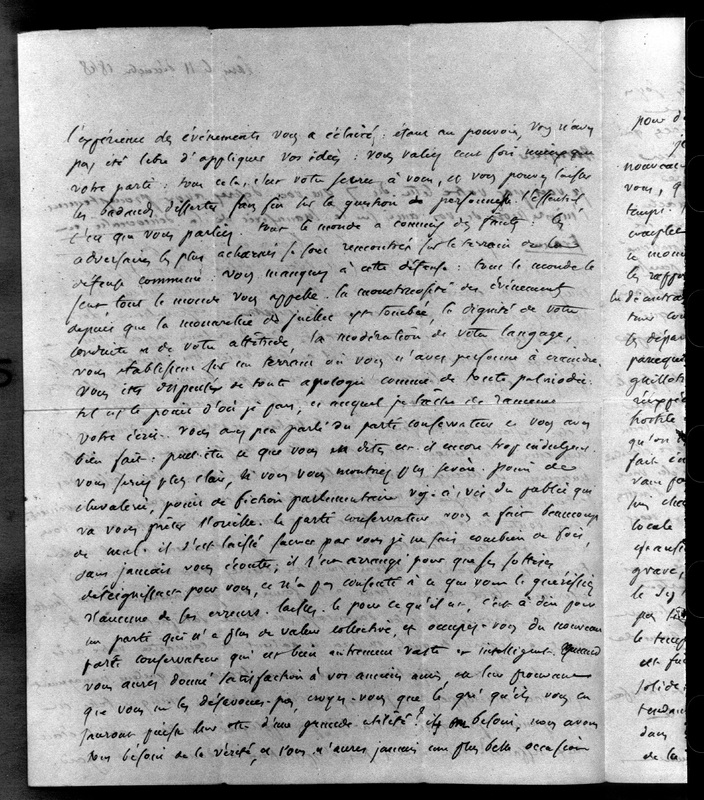 l'expérience des événements vous a éclairé ; étant au pouvoir, vous n'avez
pas été libre d'appliquer vos idées : vous valiez cent fois mieux que
votre parti : tout cela, c'est votre secret à vous, et vous pouvez laisser
les badauds disserter sans fin sur la question de personnes. l'essentiel
c'est que vous parliez. tout le monde a commis des fautes : les
adversaires les plus acharnés se sont rencontrés sur le terrain de la
défense commune. vous manquez à cette défense : tout le monde le
sent tout le monde vous appelle. la monstruosité des événements
depuis que la monarchie de juillet est tombée, la dignité de votre
conduite et de votre attitude, la modération de votre langage,
vous établissent sur un terrain où vous n'avez personne à craindre.
vous êtes dispensé de toute apologie comme de toute palinodie.
tel est le point d'où je pars, et auquel je tâche de ramener
votre écrit. vous avez peu parlé du parti conservateur et vous avez
bien fait : peut-être ce que vous en dites est-il encore trop indulgent.
vous serez plus clair, si vous vous montrez plus sévère. point de
chevalerie, point de fiction parlementaire vis-à-vis du public qui
va vous prêter l'oreille. le parti conservateur vous a fait beaucoup
de mal. il s'est laissé sauver par vous je ne sais combien de fois,
sans jamais vous écouter ; il s'est arrangé pour que ses sottises
déteignissent pour vous, et n'a pas consenti à ce que vous le guérissiez
d'aucune de ses erreurs. laissez-le pour ce qu'il est, c'est à dire pour
un parti qui n'a plus de valeur collective, et occupez-vous du nouveau
parti conservateur qui est bien autrement vaste et intelligent. Quand
vous aurez donné satisfaction à vos anciens amis en leur prouvant
que vous ne les désavouez pas, croyez-vous que le gré qu'ils vous en
sauront puisse leur être d'une grande utilité ? ils ont besoin, nous avons
tous besoin de la vérité, et vous n'aurez jamais une plus belle occasion
pour d'
nouveau
vous, q
temps.
les rappo
les dépar
parce qu
guilloti
hostile
qu'on
fait
locale
grave,
le
pas
est
solide
dans
de la